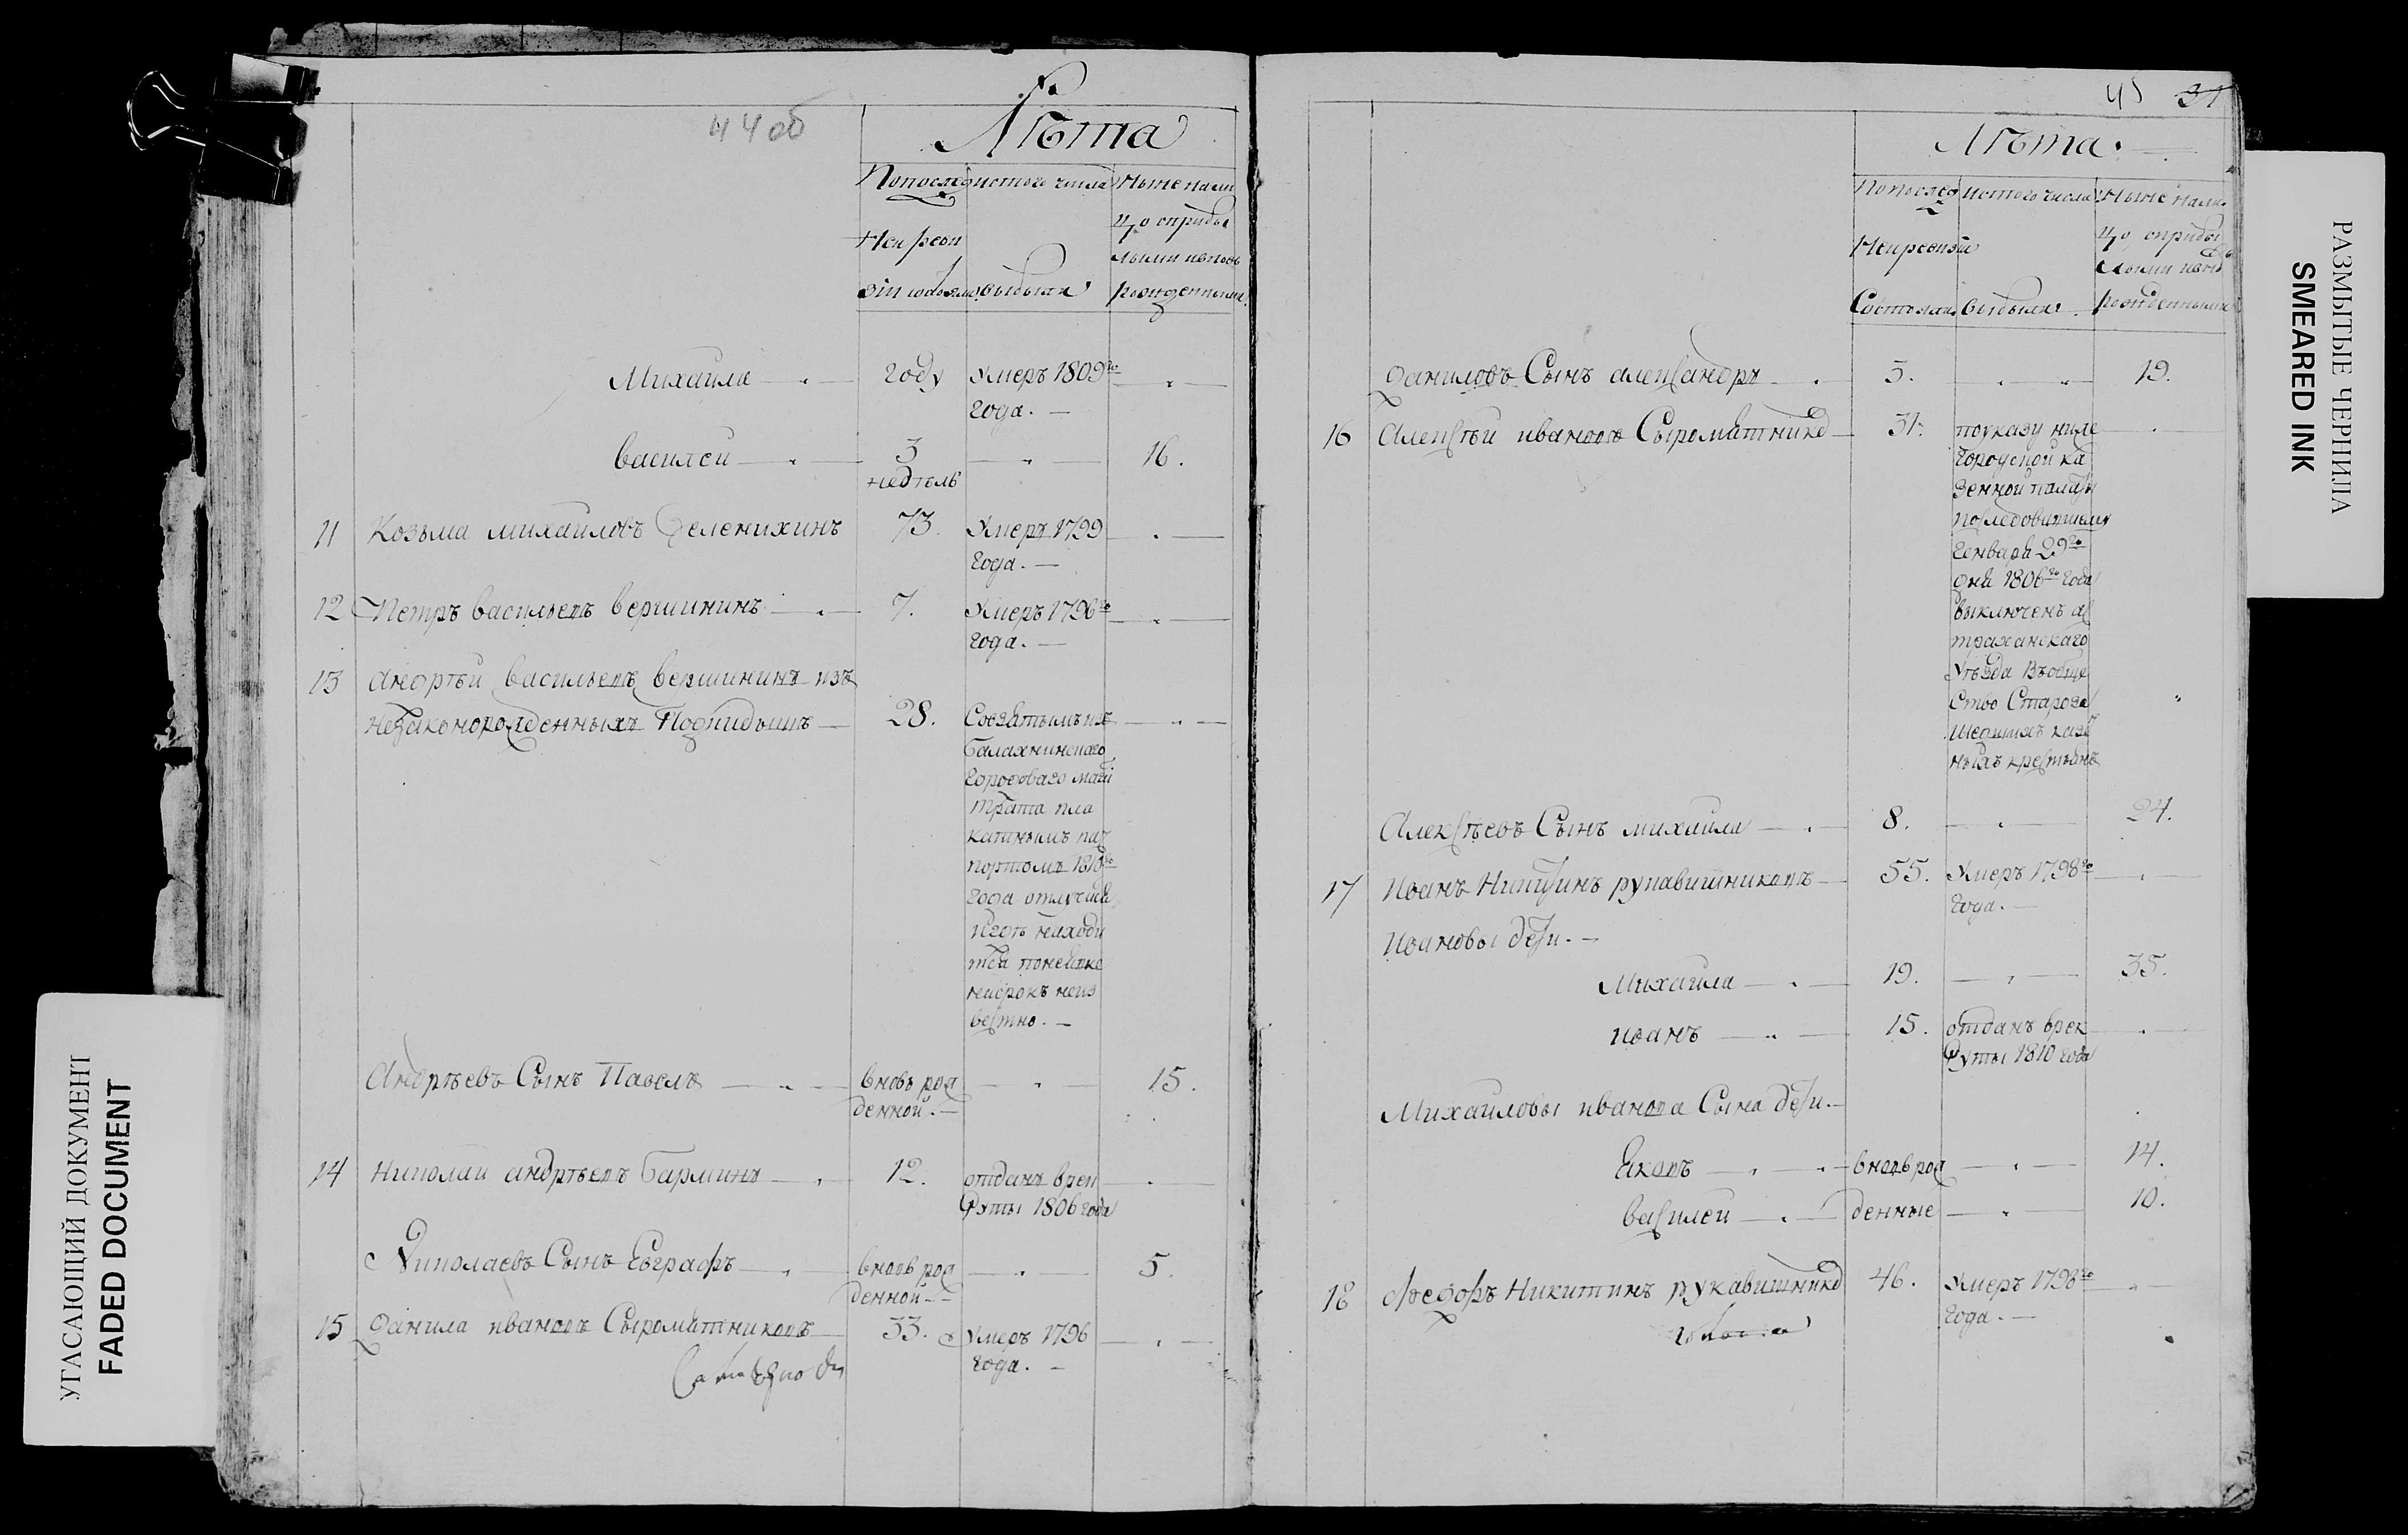 44 об
Лѣта
Попослед истого числа Ныне нали
цо сприбы
Ней реви
лыми ивновь
зіи состояло выбыли рожденными
Михаила — году Умеръ 1809го —
года. —
василей — 3 — 16.
недѣль
11 Козьма михаиловъ Зеленихинъ 73. Умеръ 1799 —
года. —
12 Петръ васильевъ вершининъ — 7. Умеръ 1796го —
года. —
13 андрѣй васильевъ вершининъ изъ
незаконорожденныхъ Подкидышъ — 28. Совзятымъ изъ —
Балахнинскаго
Городоваго маги
трата пла
катнымъ паш
портомъ 1810го
года отлучился
Игдѣ находи
тся понеявке
насрокъ неиз
вестно. —
Андрѣевъ Сынъ Павелъ — вновь рож — 15.
денной. —
14 Николай андрѣевъ Барминъ — 12. отданъ врек —
руты 1806 года
Николаевъ Сынъ Евграфъ — вновь рож — 5.
денной —
15 Данила ивановъ Сыромятниковъ 33. Умеръ 1796 —
года. —
45 31
Лѣта. —
Попослед истого числа Ныне нали
Неиревизіи цо сприбы
лыми ивнов
Состояло выбыли рожденными
Даниловъ Сынъ александръ — 3. — 19.
16 Алексѣй ивановъ Сыромятнико — 31. поуказу ниже —
Городской ка
зенной палаты
последовавшему
Генваря 29го
дня 1806го года
выключенъ ас
траханскаго
Уѣзда Въобще
ство Староза
шедшихъ казе
ныхъ крестьянъ
Алексѣевъ Сынъ михаила — 8. — 24.
17 Иванъ Никитинъ рукавишниковъ — 55. Умеръ 1798го —
года. —
Ивановы дети. —
Михаила — 19. — 35.
иванъ — 15. отданъ врек —
руты 1810 года
Михаиловы иванова Сына дети. —
Яковъ — вновь рож — 14.
василей — денные — 10.
18 Федоръ Никитинъ рукавишнико 46. Умеръ 1798го —
года. —
УГАСАЮЩИЙ ДОКУМЕНТ
FADED DOCUMENT
РАЗМЫТЫЕ ЧЕРНИЛА
SMEARED INK